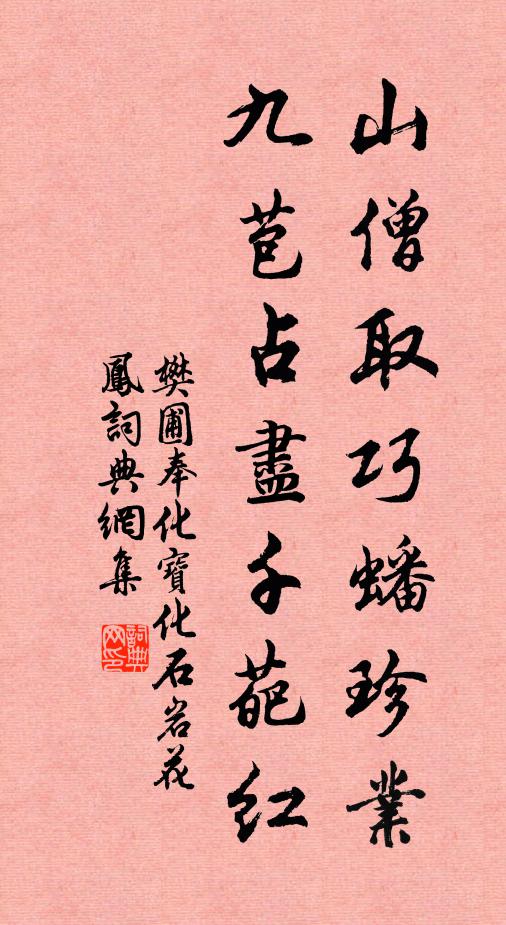 山僧取巧蟠珍業
九苞占盡千葩紅
樊圃奉化寶化石岩花
鳳詞典網集
詞典網印